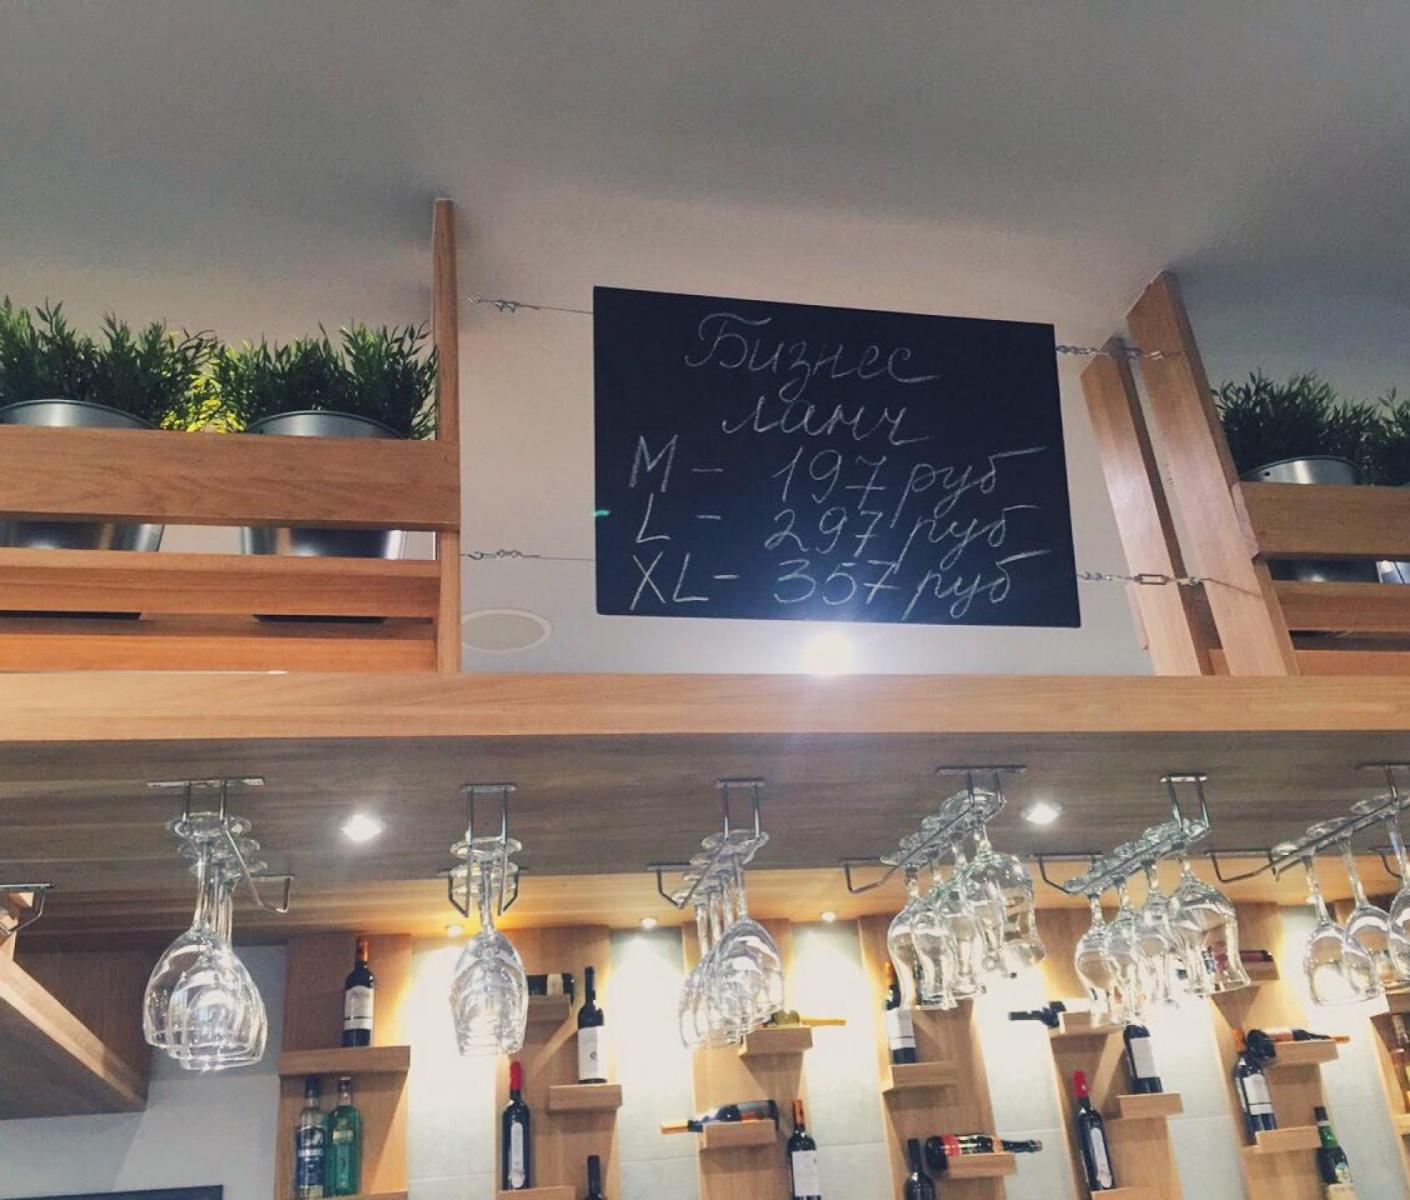 Бизнес
ланч
M - 197 руб
L - 297 руб
XL - 357 руб